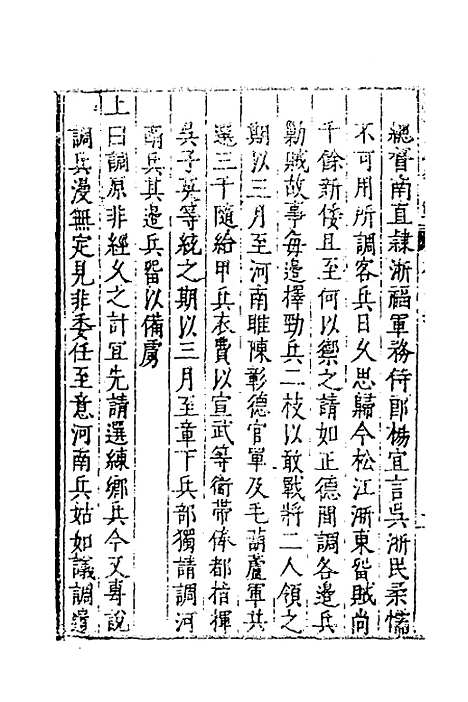 總督南直隸浙福軍務侍郎楊宜言吳浙民柔懦
不可用所調客兵日久思歸今松江浙東畱賊尚
千餘新倭且至何以禦之請如正德間調各邊兵
勦賊故事每邊擇勁兵二枝以敢戰將二人領之
期以三月至河南睢陳彰德官軍及毛葫蘆軍共
選三千隨給甲兵衣費以宣武等衛帶俸都指揮
吳子英等統之期以三月至章下兵部獨請調河
南兵其邊兵畱以備虜
上曰調原非經久之計宜先請選練鄉兵今又專說
調兵漫無定見非委任至意河南兵姑如議調遣